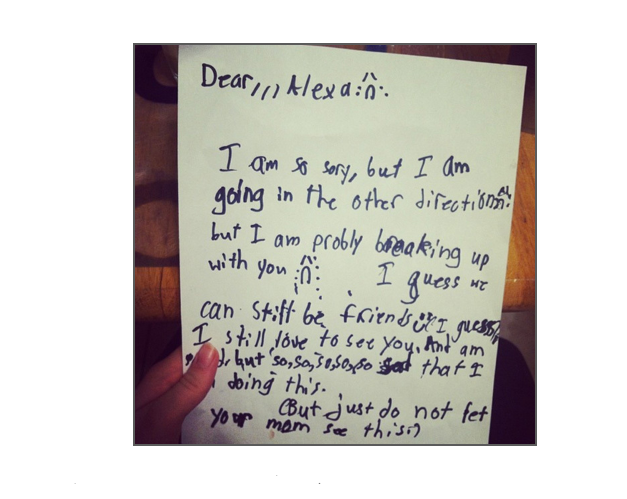 Dear,,, Alexa
I am so sory, but I am
going in the other direction
but I am probly breaking up
with you I guess we
can still be friends I guess
I still love to see you. And am
but so, so, so, so, so sad that I
doing this.
(But just do not let
your mom see this!)